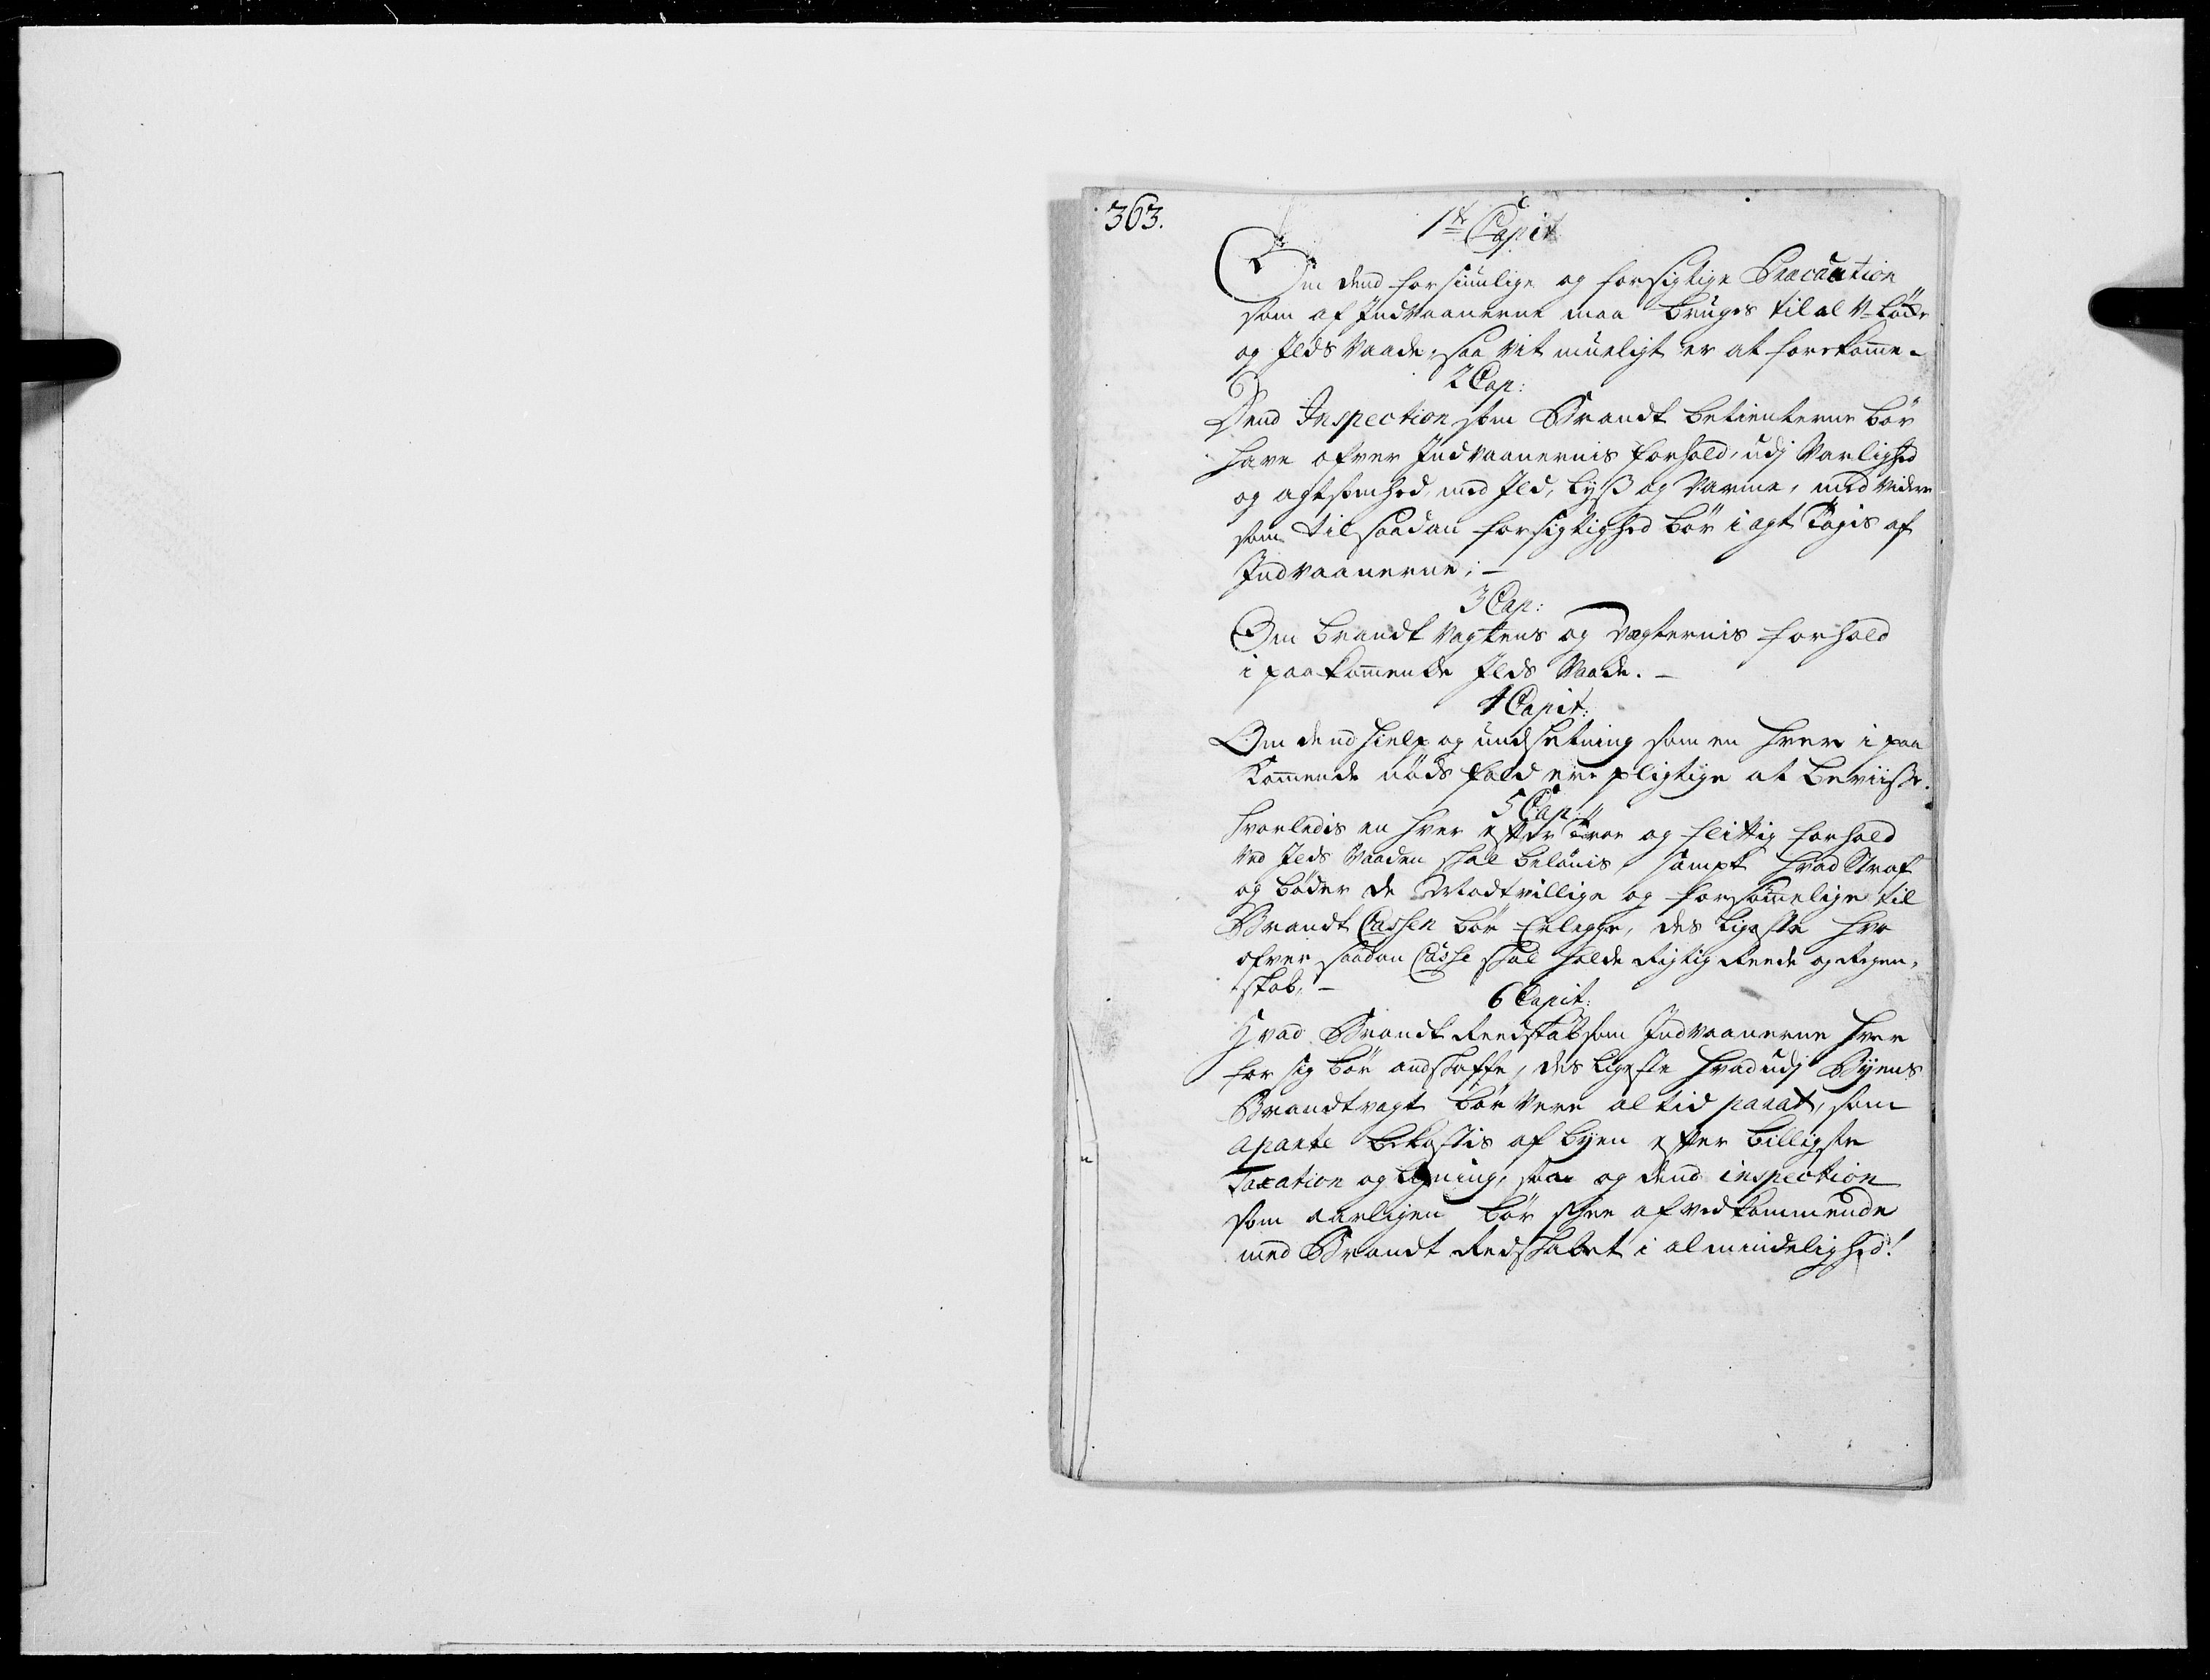 363.
1te Capit
Om dend forsiunlige og forsigtige Præcaution
som af Indvaanerne maa bruges til al
og Ilds Vaade, saa vit mueligt er at forekomme.
2 Cap:
Dend Inspection som Brandt betienterne bör
have ofver Indvaanernis forhold, udj Varlighed
og agtsomhed, med Ild, lyss og Varme, med videre
som til saadan forsigtighed bör i agt tagis af
Indvaanerne; -
3 Cap:
Om brandt Vagtens og Vægternis forhold
i paakommende Ilds Vaade. -
4 Capit:
Om dend hielp og undsetning som en hver i paa
kommende nöds fald ere pligtige at beviisse.
5 Cap:
Hvorledis en hver efter troe og flittig forhold
ved Ilds Vaaden skal belönis, sampt hvad Straf
og böder de Modtvillige og forsömmelige til
Brandt Cassen bör Erlegge, des ligeste hvo
ofver saadan Casse skal holde Rigtig Reede og Regen,
skab, -
6 Capit:
Hvad Brandt Reedskab som Indvaanerne hver
for sig bör andskaffe, des ligeste hvad udj Byens
Brandtvagt bör være al tid parat, som
aparte bekostis af byen efter billigste
Taxation og ligning, saa og dend inspection
som aarligen bör skee af vedkommende
med Brandt Redskabet i almindelighed!